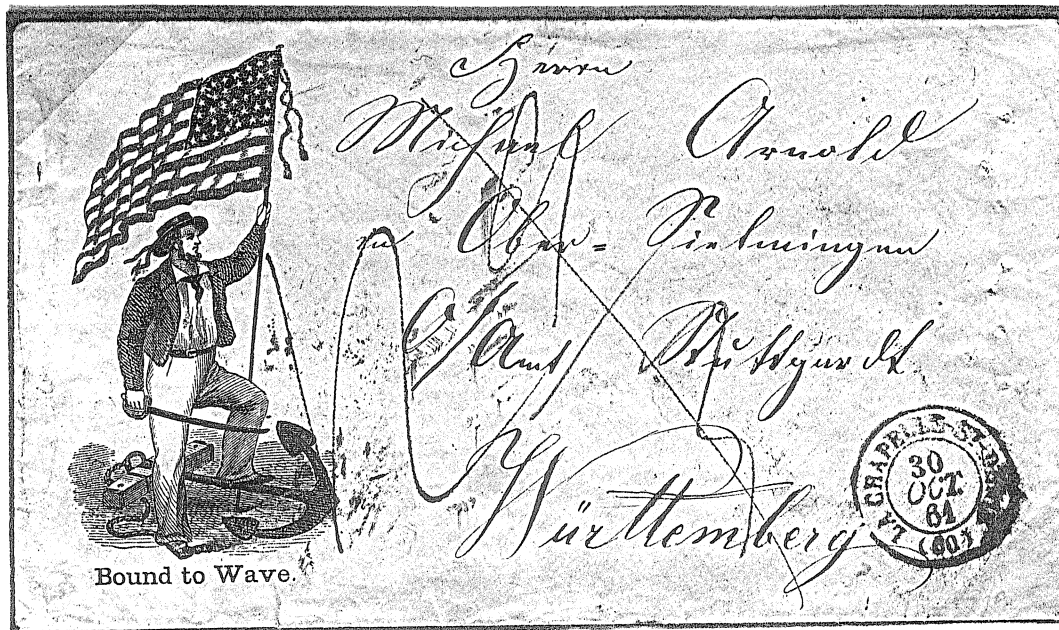 Herrn
Michael Arnold
in Ober=Sielmingen
O/Amt Stuttgardt
Württemberg
LA CHAPELLE-ST-DENIS
30
OCT.
61
(60)
Bound to Wave.